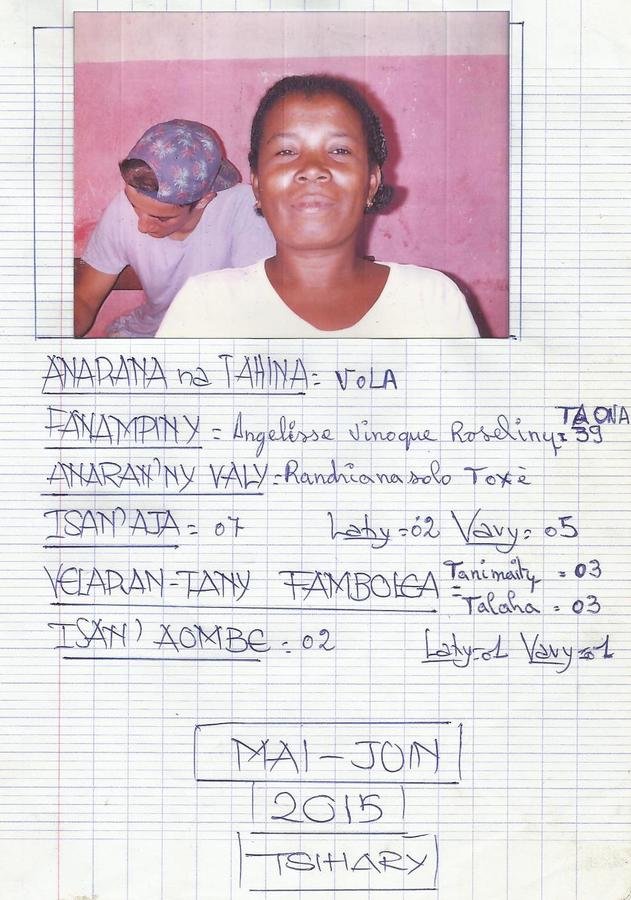 ANARANA na TAHINA = VOLA
FANAMPINY = Angelisse Vinoque Roseliny = 39 TAONA
ANARAN'NY VALY = Randrianasolo Toxè
ISAN'AJA = 07 Lahy = 02 Vavy = 05
VELARAN-TANY FAMBOLEA = Tanimaity = 03
Talaha = 03
ISAN'AOMBE = 02 Lahy = 01 Vavy = 01
MAI-JOIN
2015
TSIHARY